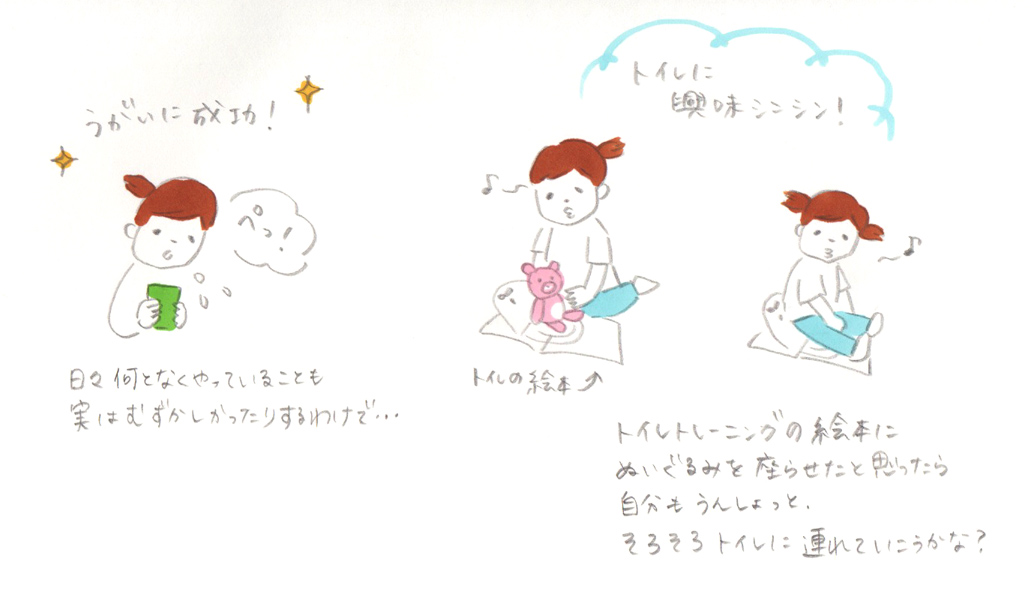 うがいに成功！
ペっ！
日々何となくやっていることも
実はむずかしかったりするわけで…
トイレに
興味シンシン！
トイレの絵本
トイレトレーニングの絵本に
ぬいぐるみを座らせたと思ったら
自分もうんしょっと、
そろそろトイレに連れていこうかな？